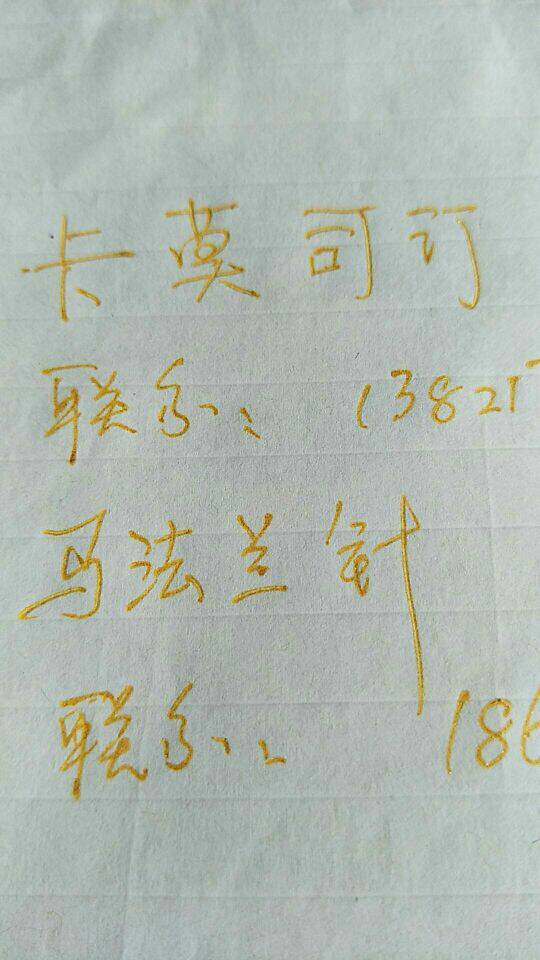 卡莫司汀
联系: 13821
马法兰针
联系: 186